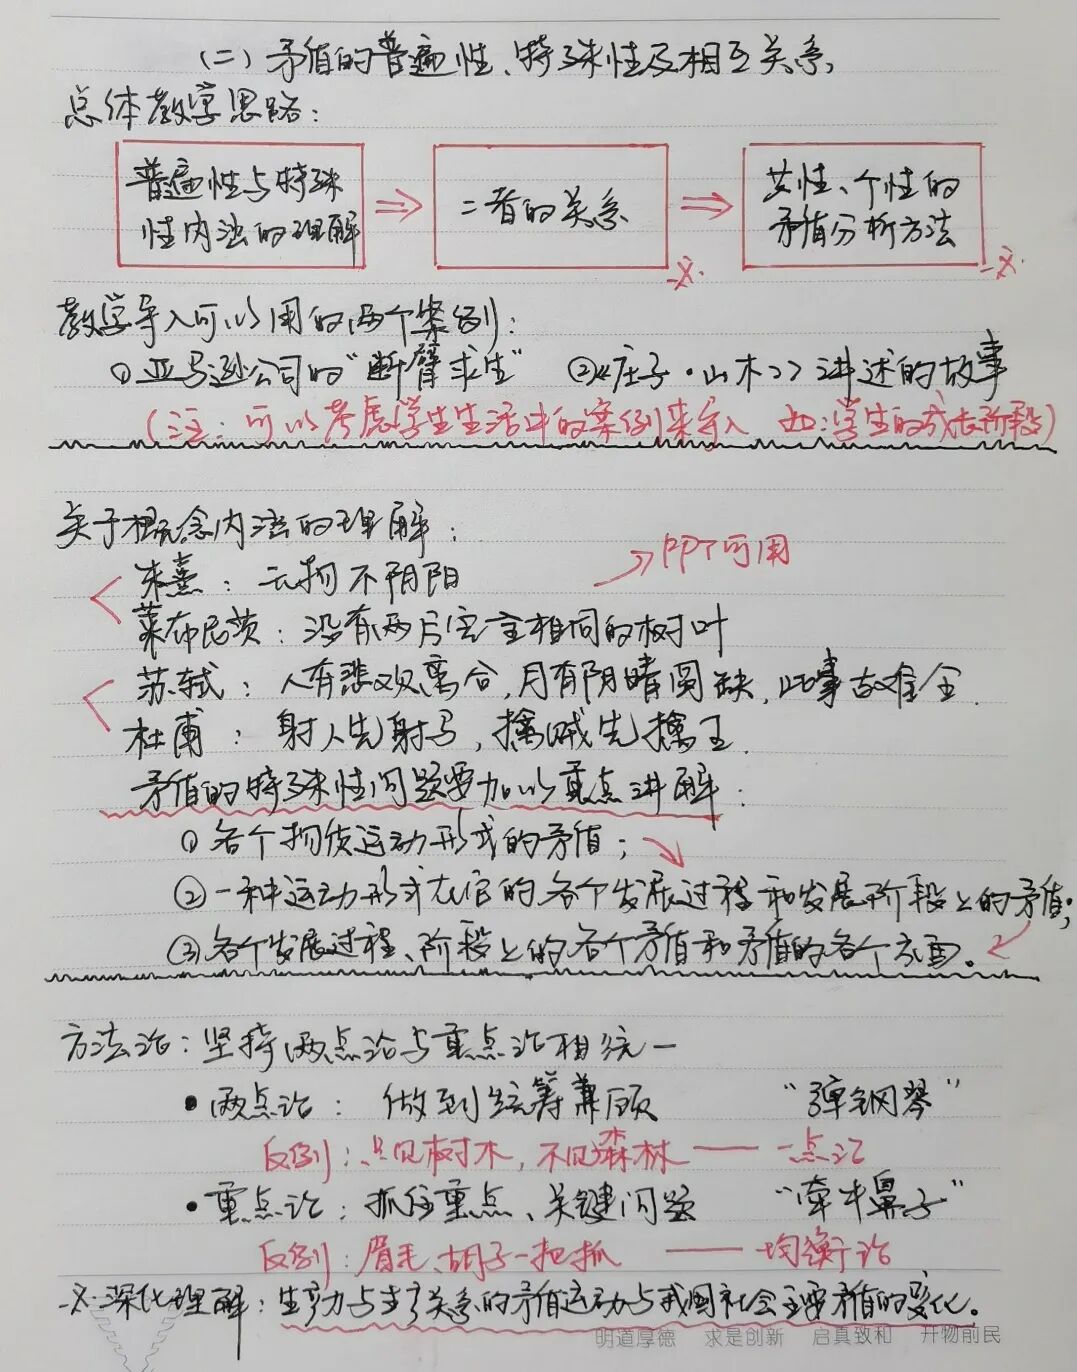 （二）矛盾的普遍性、特殊性及相互关系
总体教学思路：
普遍性与特殊
性内涵的理解
⇒
二者的关系
⇒
共性、个性的
矛盾分析方法
※
※
教学导入可以用的两个案例：
①亚马逊公司的“断臂求生” ②《庄子·山木》讲述的故事
（注：可以考虑学生生活中的案例来导入 如：学生的成长阶段）
关于概念内涵的理解：
朱熹：云物不阴阳
→PPT可用
莱布尼茨：没有两片完全相同的树叶
苏轼：人有悲欢离合，月有阴晴圆缺，此事古难全.
杜甫：射人先射马，擒贼先擒王.
矛盾的特殊性问题要加以重点讲解：
①各个物质运动形式的矛盾；
②一种运动形式在它的各个发展过程和发展阶段上的矛盾；
③各个发展过程、阶段上的各个矛盾和矛盾的各个方面。
方法论：坚持两点论与重点论相统一
•两点论：做到统筹兼顾 “弹钢琴”
反例：只见树木，不见森林——一点论
•重点论：抓住重点、关键问题 “牵牛鼻子”
反例：眉毛、胡子一把抓——均衡论
※深化理解：生产力与生产关系的矛盾运动与我国社会主要矛盾的变化。
明道厚德 求是创新 启真致和 开物前民